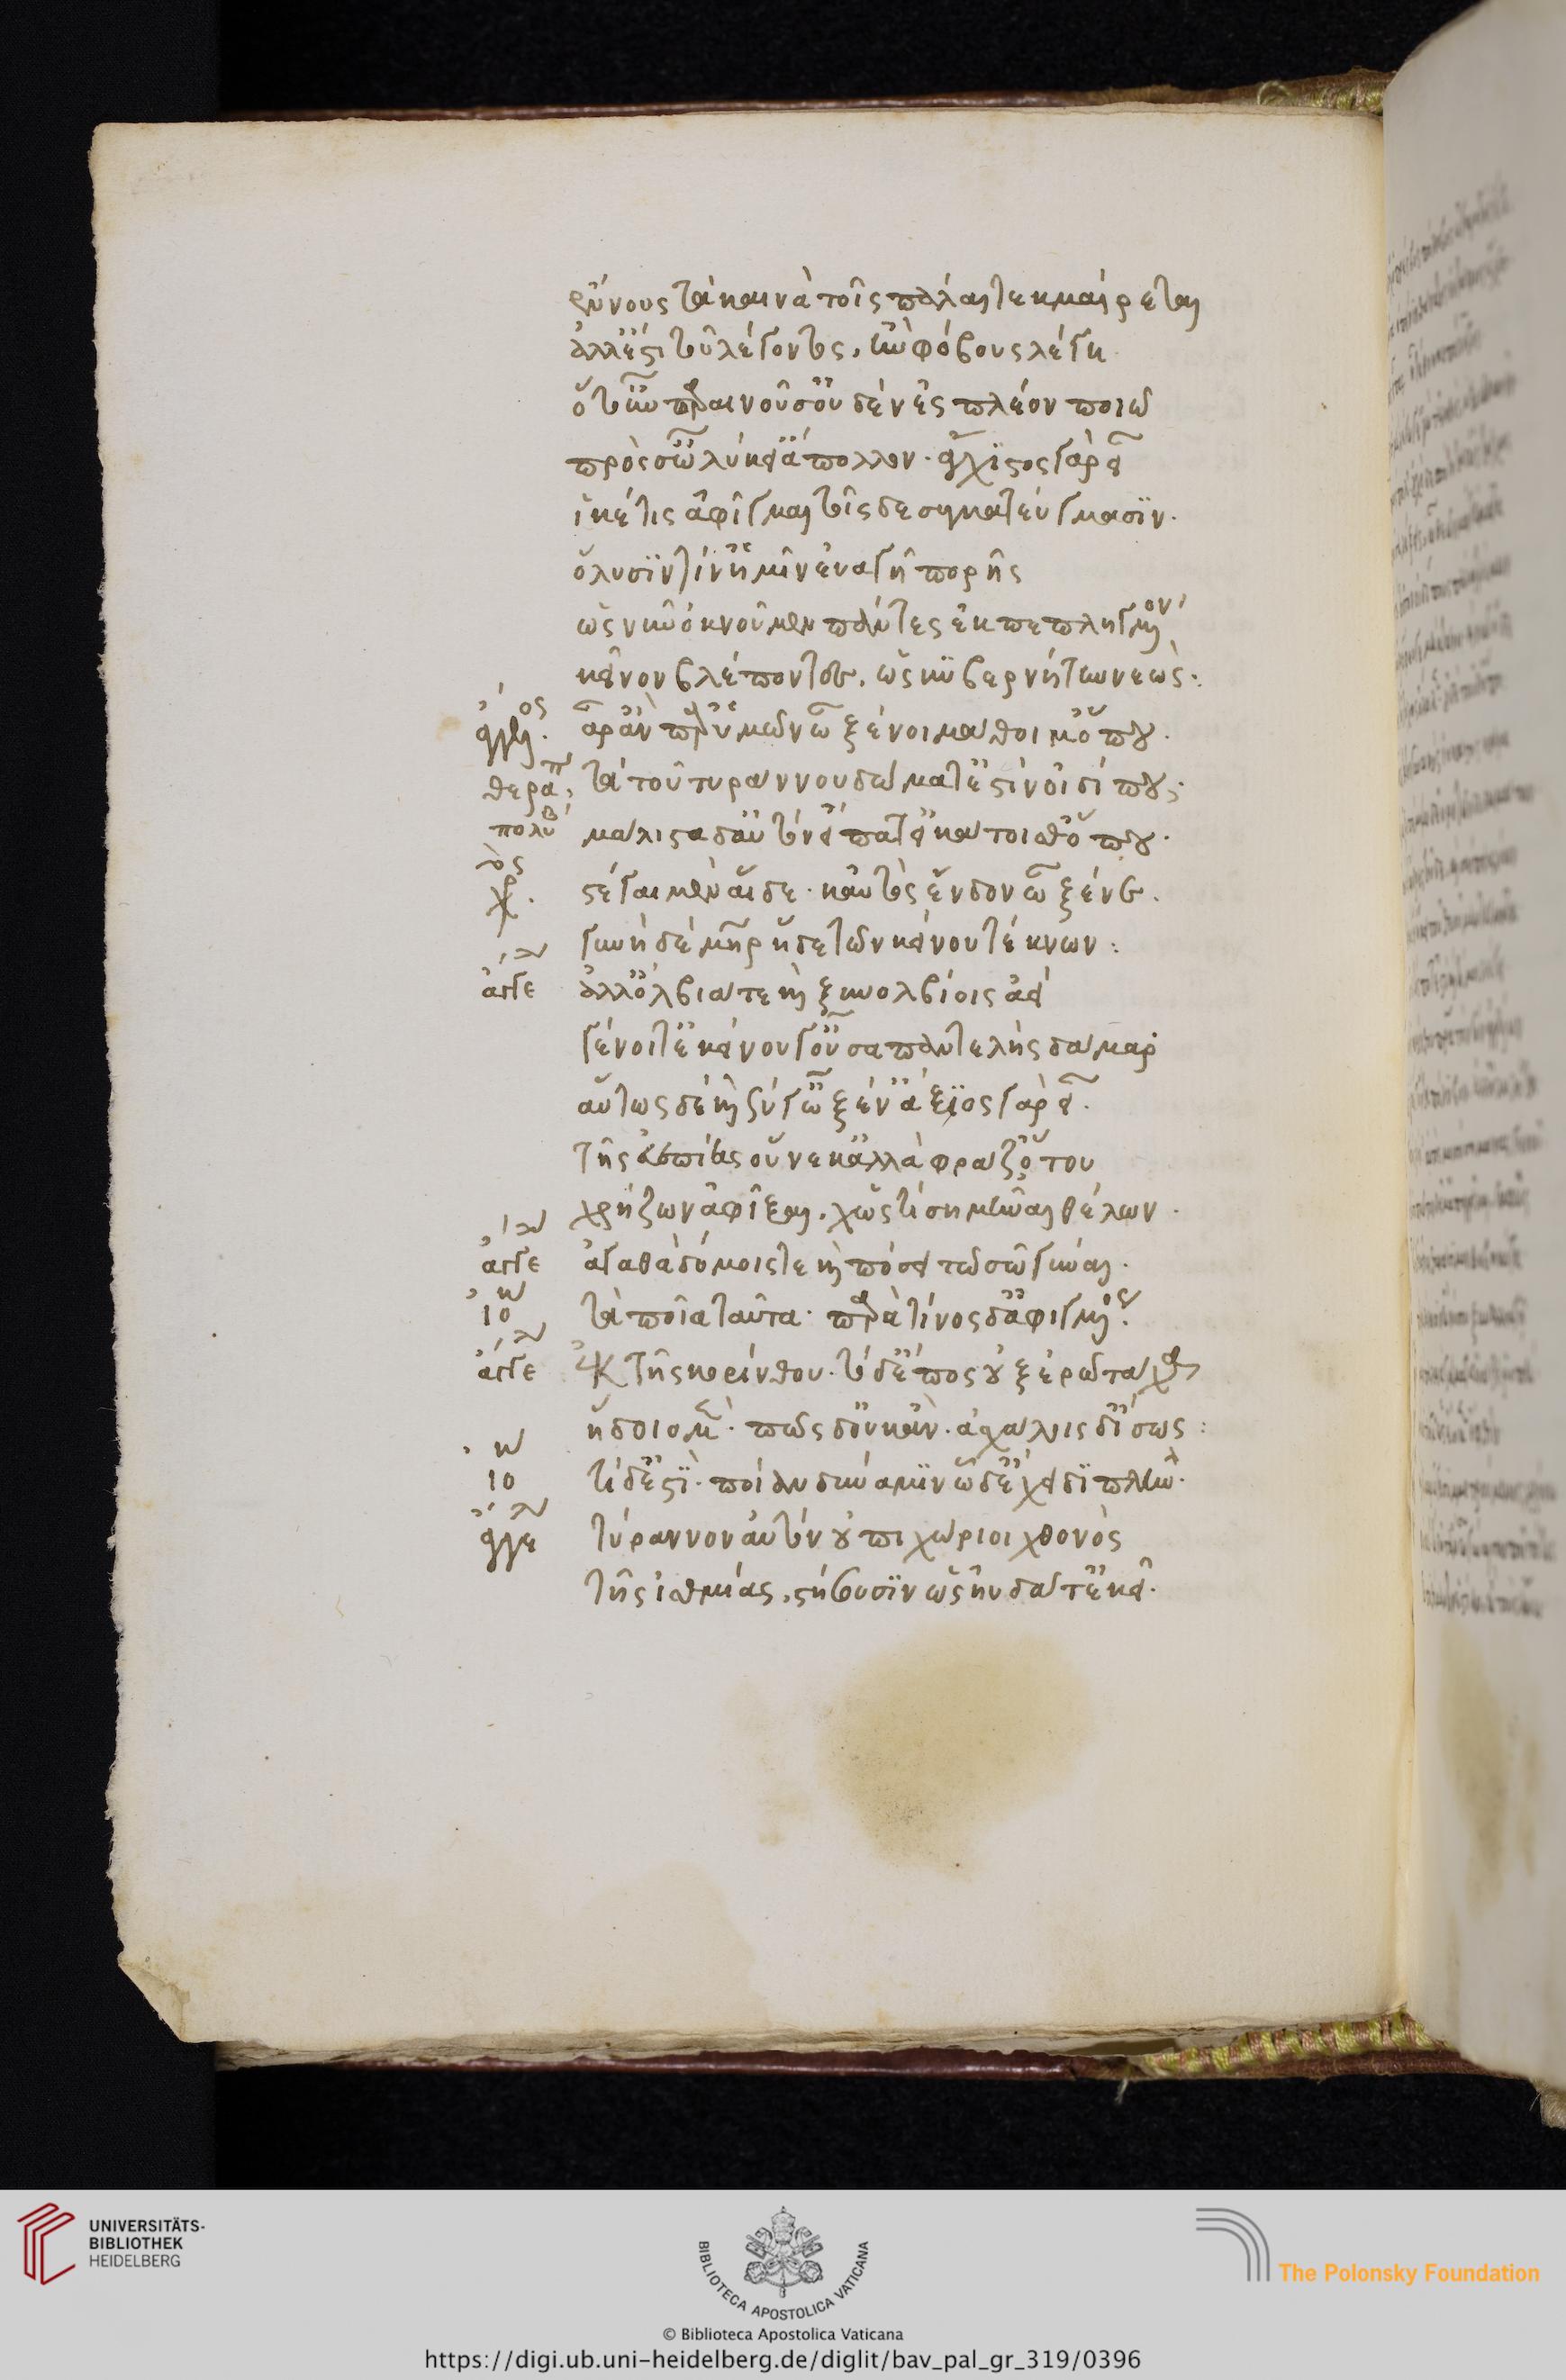 ἔννους τὰ καινὰ τοῖς πάλαι τεκμαίρεται
ἀλλ' ἔστι τοῦ λέγοντος, ἢν φόβους λέγη
ὅτ' οὖν παραινοῦσ' οὐδὲν ἐς πλέον ποιῶ
πρὸς σ' ὦ λύκει' ἄπολλον· ἄγχιστος γὰρ εἶ
ἱκέτις ἀφῖγμαι τοῖσδε σὺν κατεύγμασϊν.
λυσϊν τίν' ἡμῖν εὐαγῆ πορῆς
ὡς νῦν ὀκνοῦμεν πάντες ἐκπεπληγμένον
κεῖνον βλέποντες, ὡς κϋβερνήτην νεώς:
ἄγγελος. ἆρ' ἂν παρ' ὑμῶν ὦ ξένοι μάθοιμ' ὅπου.
θεραπ τὰ τοῦ τυράννου δώματ' ἐστὶν οἰδίπου;
πολυβ μάλιστα δ' αὐτὸν εἴπατ' εἰ κάτοισθ' ὅπου.
χορὸς. στέγαι μὲν αἵδε· καὐτὸς ἔνδον ὦ ξένε.
γυνὴ δὲ μήτηρ ἥδε τῶν κείνου τέκνων:
ἄγγε ἀλλ' ὀλβία τε καὶ ξὺν ὀλβίοις ἀεὶ
γένοιτ' ἐκείνου γ' οὖσα παντελὴς δάμαρ
αὔτως δὲ καὶ σύ γ' ὦ ξέν' ἄξϊος γὰρ εἶ.
τῆς εὐεπείας οὕνεκ' ἀλλὰ φράζ' ὅτου
χρήζων ἀφῖξαι, χὥστι σημῆναι θέλων.
ἄγγε ἀγαθὰ δόμοις τε καὶ πόσει τῶ σῶ γύναι.
ἰο τὰ ποῖα ταῦτα· παρὰ τίνος δ' ἀφιγμένος.
ἄγγε ἐκ τῆς κορίνθου. τὸ δ' ἔπος οὑξερῶ τάχα
ἥδοιο μὲν· πῶς δ' οὐκ ἂν. ἀσχάλλοις δ' ἴσως:
ἰο τί δ' ἔστϊ. ποίαν δύναμϊν ὧδ' ἔχει δϊπλῆν.
ἄγγε τύραννον αὐτὸν οὑπιχώριοι χθονὸς
τῆς ἰσθμίας, στήσουσϊν ὡς ηὐδᾶτ' ἐκεῖ.
UNIVERSITÄTS-
BIBLIOTHEK
HEIDELBERG
BIBLIOTECA APOSTOLICA VATICANA
The Polonsky Foundation
© Biblioteca Apostolica Vaticana
https://digi.ub.uni-heidelberg.de/diglit/bav_pal_gr_319/0396